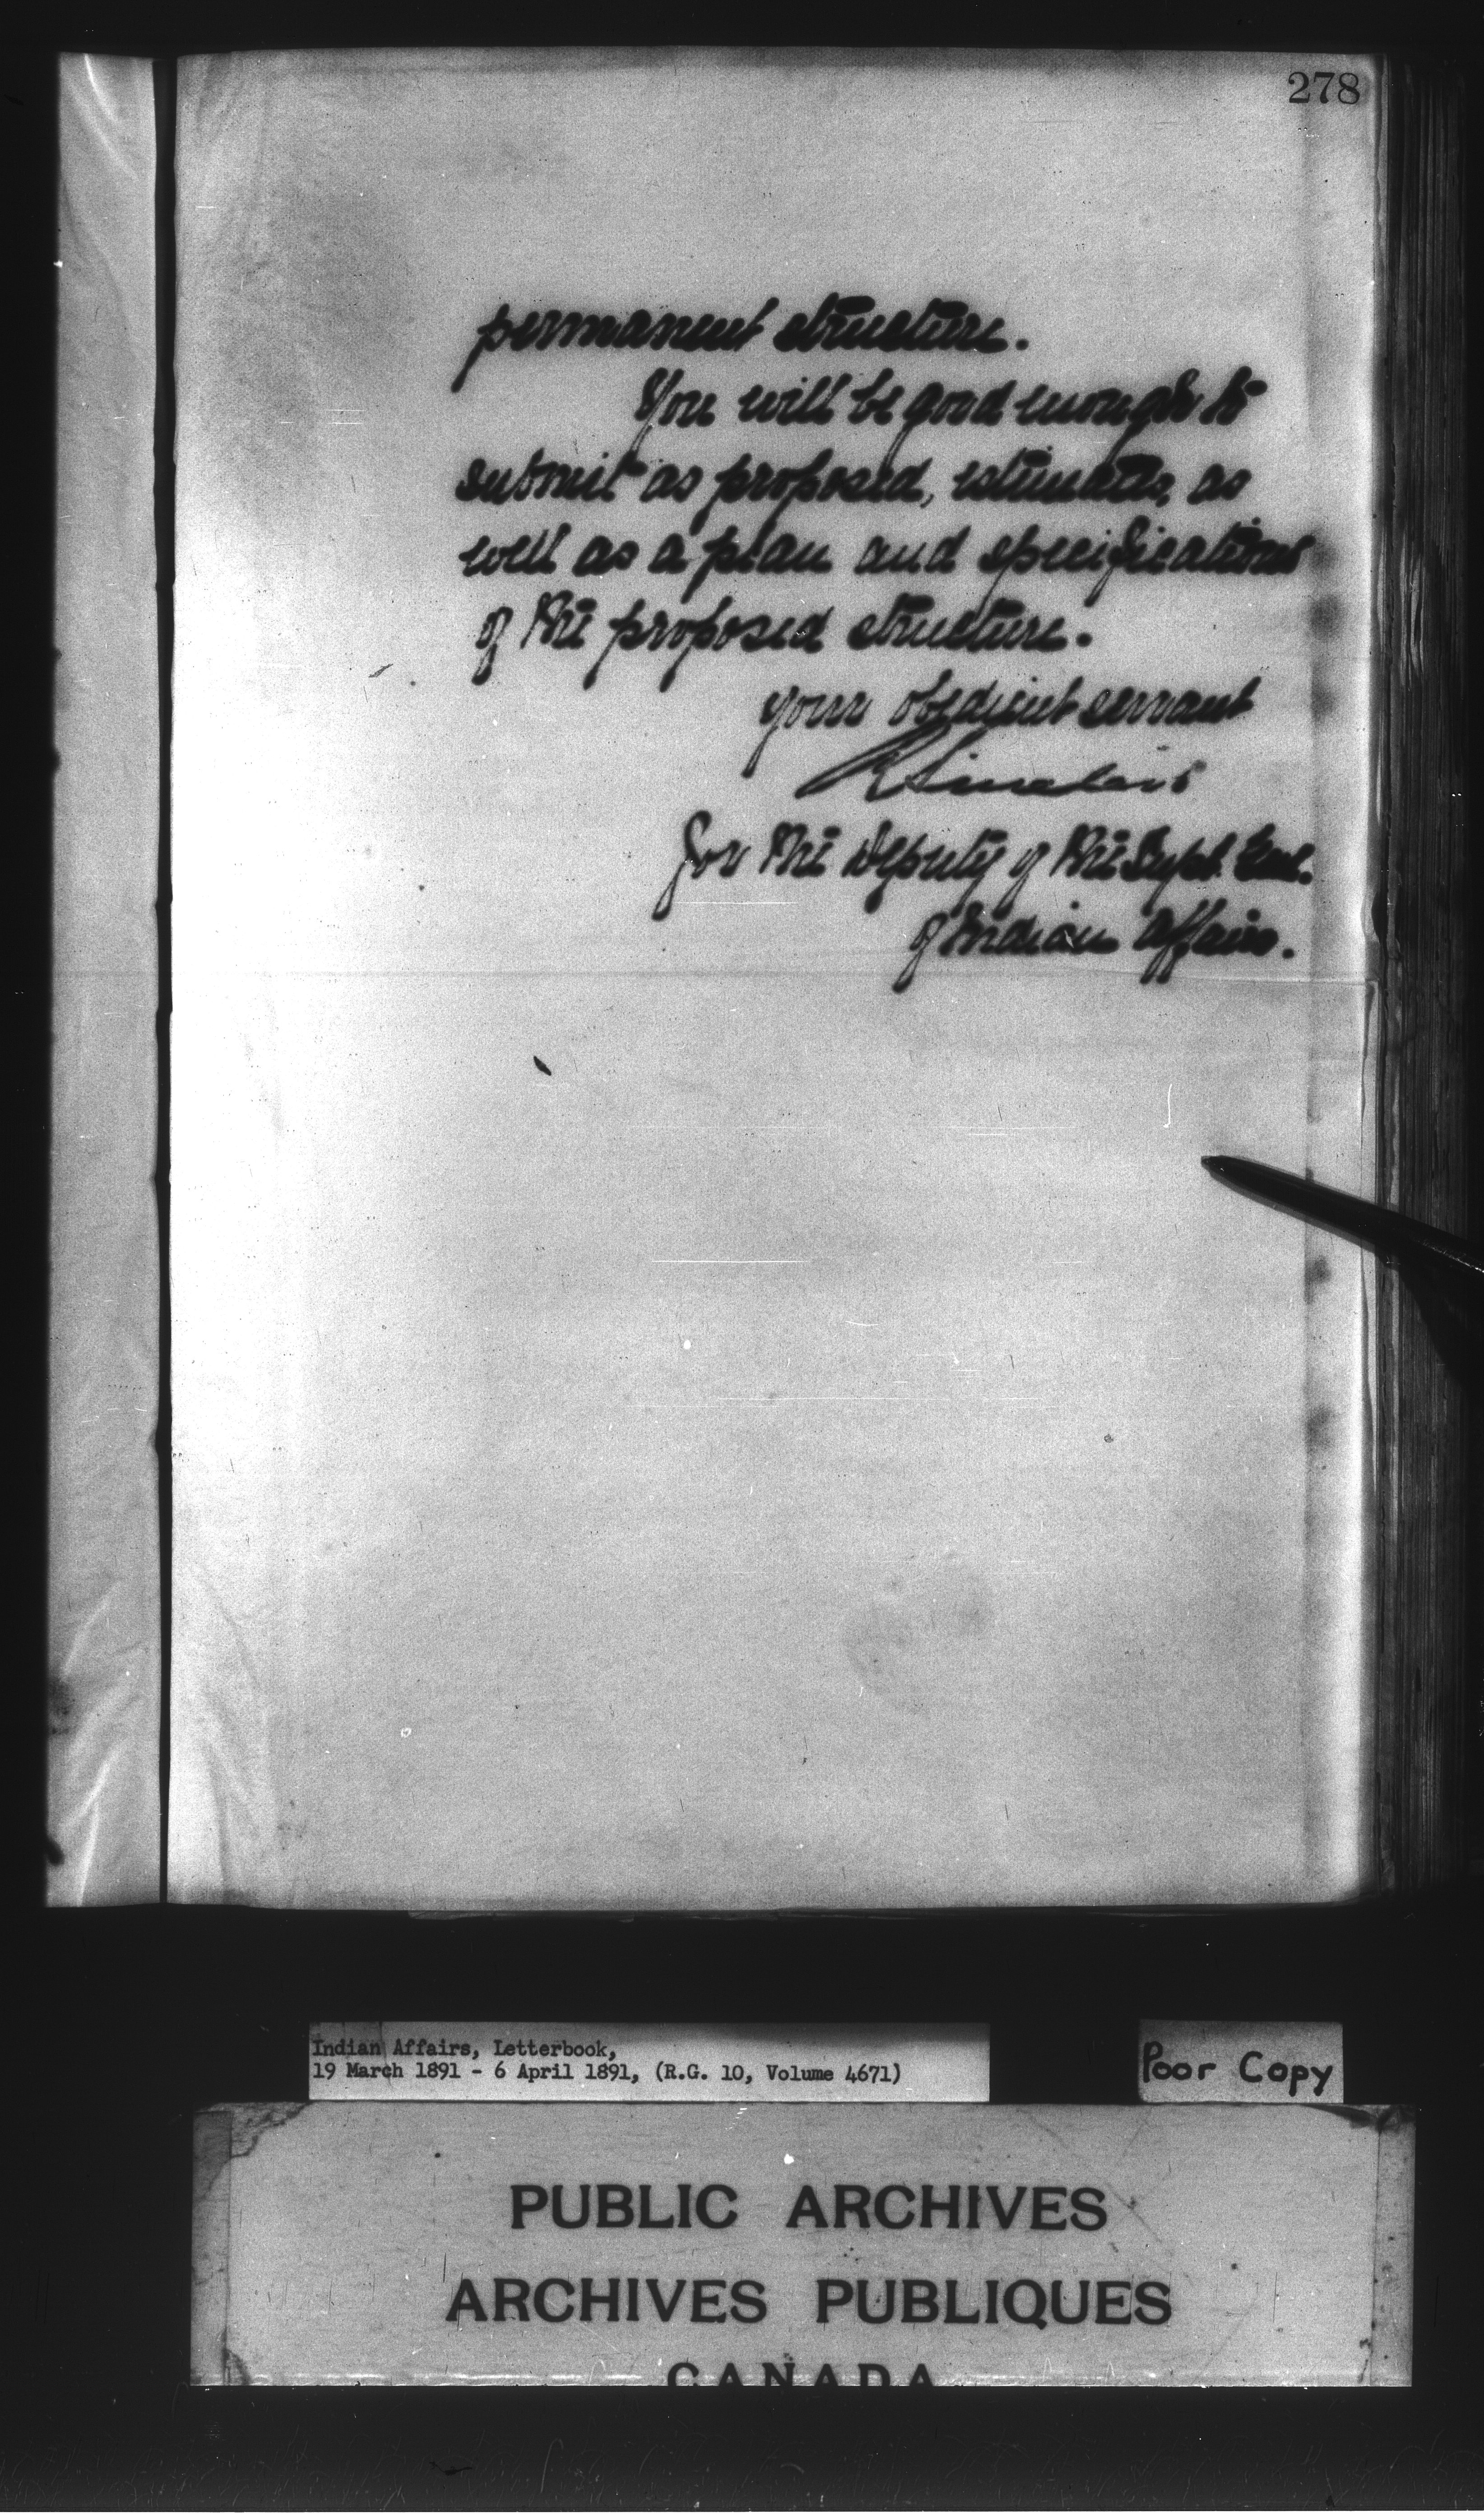 278
permanent structure.
You will be good enough to
submit as proposed, estimates, as
well as a plan and specifications
of the proposed structure.
your obedient servant
R Sinclair
for the Deputy of the Supt. Genl.
of Indian Affairs.
Indian Affairs, Letterbook,
19 March 1891 - 6 April 1891, (R.G. 10, Volume 4671)
Poor Copy
PUBLIC ARCHIVES
ARCHIVES PUBLIQUES
CANADA